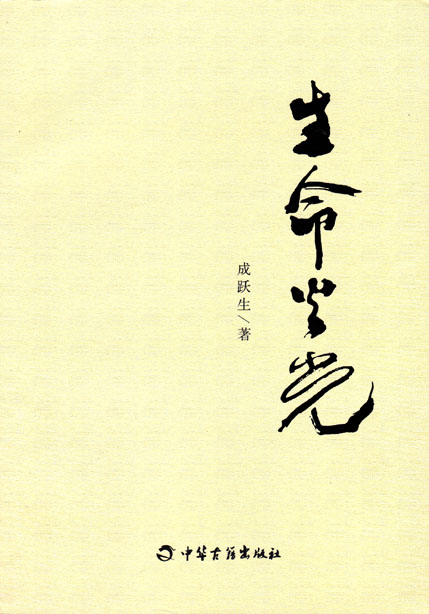 生命光
成跃生\著
中华古籍出版社